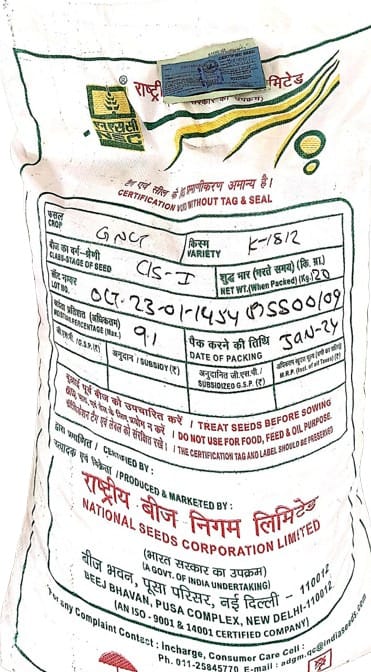 एन एस सी
NSC
राष्ट्री मिटेड
टैग एवं सील के बिना प्रमाणीकरण अमान्य है।
CERTIFICATION VOID WITHOUT TAG & SEAL
फसल
CROP GNUT किस्म
VARIETY K-1812
बीज का वर्ग-श्रेणी
CLASS-STAGE OF SEED C/S-I शुद्ध भार (भरते समय) (कि. ग्रा.)
NET WT.(When Packed) (Kg.) 20
लॉट नम्बर
LOT NO. OCT-23-01-1454 (P)SS00109
MOISTURE PERCENTAGE (Max.) 9% पैक करने की तिथि
DATE OF PACKING JAN-24
जी.एस.पी. / G.S.P. (₹) अनुदान / SUBSIDY (₹) अनुदानित जी.एस.पी. /
SUBSIDIZED G.S.P. (₹) M.R.P. (Incl. of all Taxes) (₹)
बुआई पूर्व बीज को उपचारित करें / TREAT SEEDS BEFORE SOWING
/ DO NOT USE FOR FOOD, FEED & OIL PURPOSE.
/ THE CERTIFICATION TAG AND LABEL SHOULD BE PRESERVED
द्वारा प्रमाणित / CERTIFIED BY :
उत्पादक एवं विक्रेता /PRODUCED & MARKETED BY :
राष्ट्रीय बीज निगम लिमिटेड
NATIONAL SEEDS CORPORATION LIMITED
(भारत सरकार का उपक्रम)
(A GOVT. OF INDIA UNDERTAKING)
बीज भवन, पूसा परिसर, नई दिल्ली - 110012
BEEJ BHAVAN, PUSA COMPLEX, NEW DELHI-110012
(AN ISO - 9001 & 14001 CERTIFIED COMPANY)
For any Complaint Contact : Incharge, Consumer Care Cell :
Ph. 011-25845770 E-mail : adgm.qc@indiaseeds.com